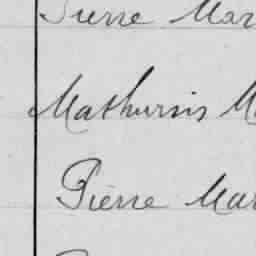 Pierre Mar
Mathurin M
Pierre Mar